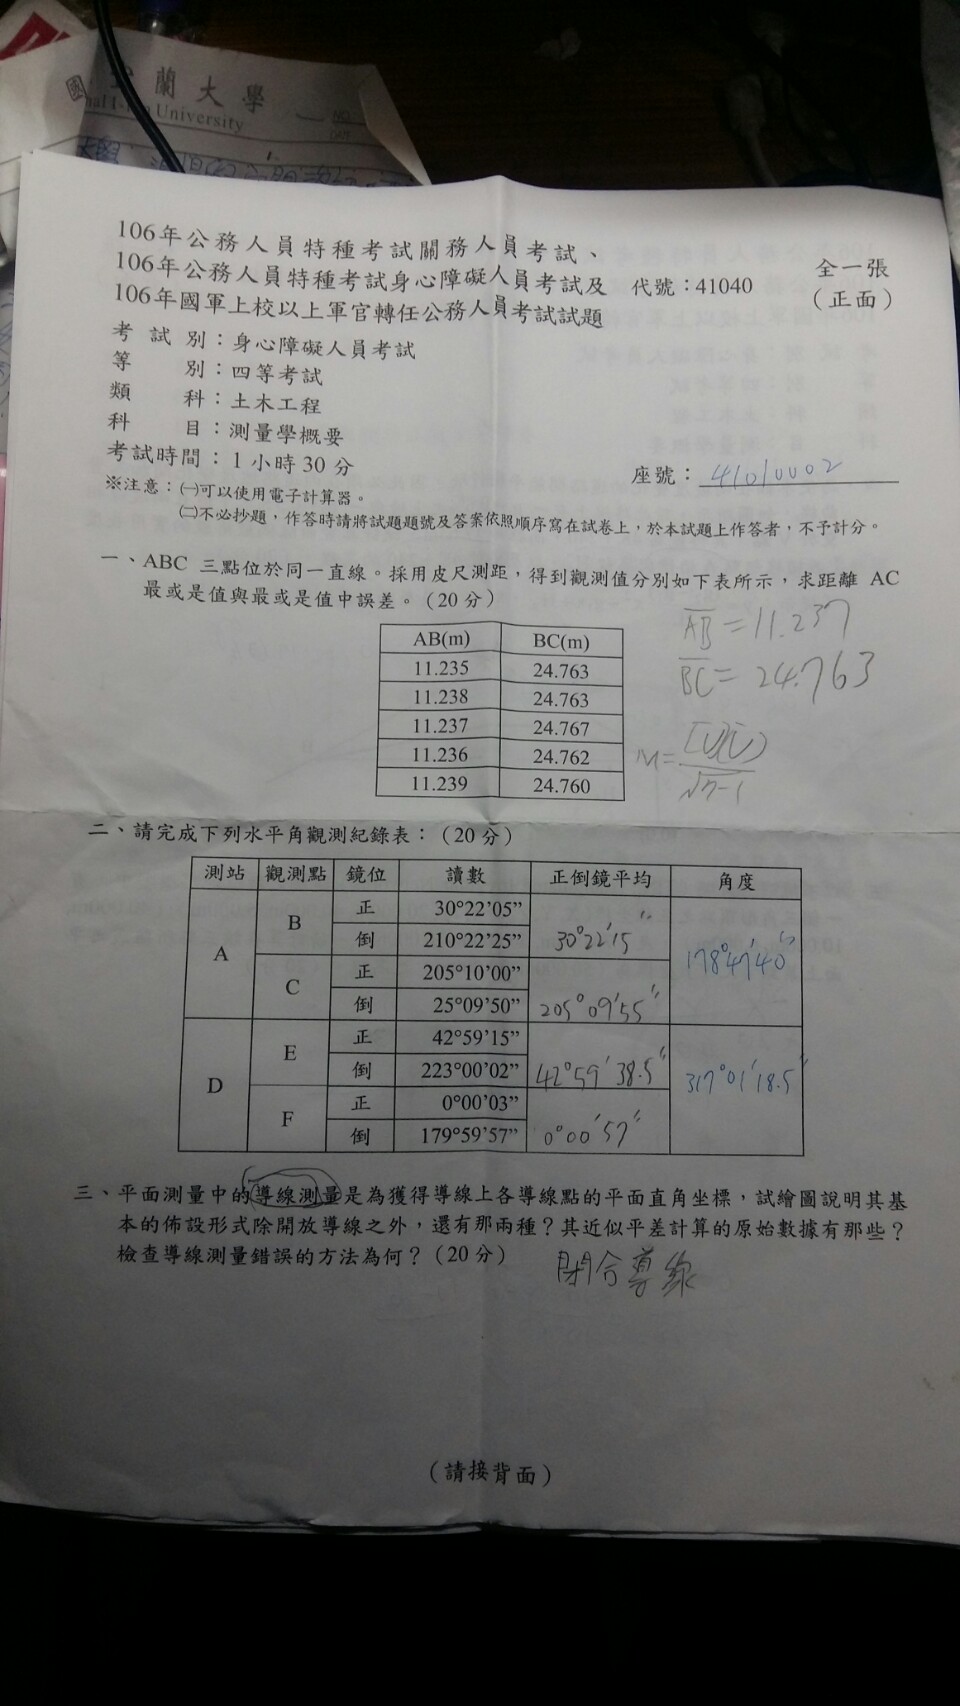 蘭大學
University
106年公務人員特種考試關務人員考試、
106年公務人員特種考試身心障礙人員考試及 代號：41040
106年國軍上校以上軍官轉任公務人員考試試題
全一張
（正面）
考試別：身心障礙人員考試
等別：四等考試
類科：土木工程
科目：測量學概要
考試時間：1小時30分
座號：41010002
※注意：㈠可以使用電子計算器。
㈡不必抄題，作答時請將試題題號及答案依照順序寫在試卷上，於本試題上作答者，不予計分。
一、ABC 三點位於同一直線。採用皮尺測距，得到觀測值分別如下表所示，求距離 AC
最或是值與最或是值中誤差。（20 分）
AB(m) BC(m)
11.235 24.763
11.238 24.763
11.237 24.767
11.236 24.762
11.239 24.760
AB = 11.237
BC = 24.763
M = [VV] / √n-1
二、請完成下列水平角觀測紀錄表：（20 分）
測站 觀測點 鏡位 讀數 正倒鏡平均 角度
A B 正 30°22’05” 30°22'15" 178°47'40"
倒 210°22’25”
C 正 205°10’00” 205°09'55"
倒 25°09’50”
D E 正 42°59’15” 42°59'38.5" 317°01'18.5"
倒 223°00’02”
F 正 0°00’03” 0°00'57"
倒 179°59’57”
三、平面測量中的導線測量是為獲得導線上各導線點的平面直角坐標，試繪圖說明其基
本的佈設形式除開放導線之外，還有那兩種？其近似平差計算的原始數據有那些？
檢查導線測量錯誤的方法為何？（20 分）
閉合導線
（請接背面）